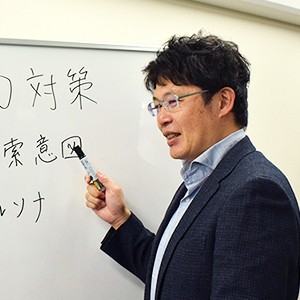 O 対策
索意図
ルソナ